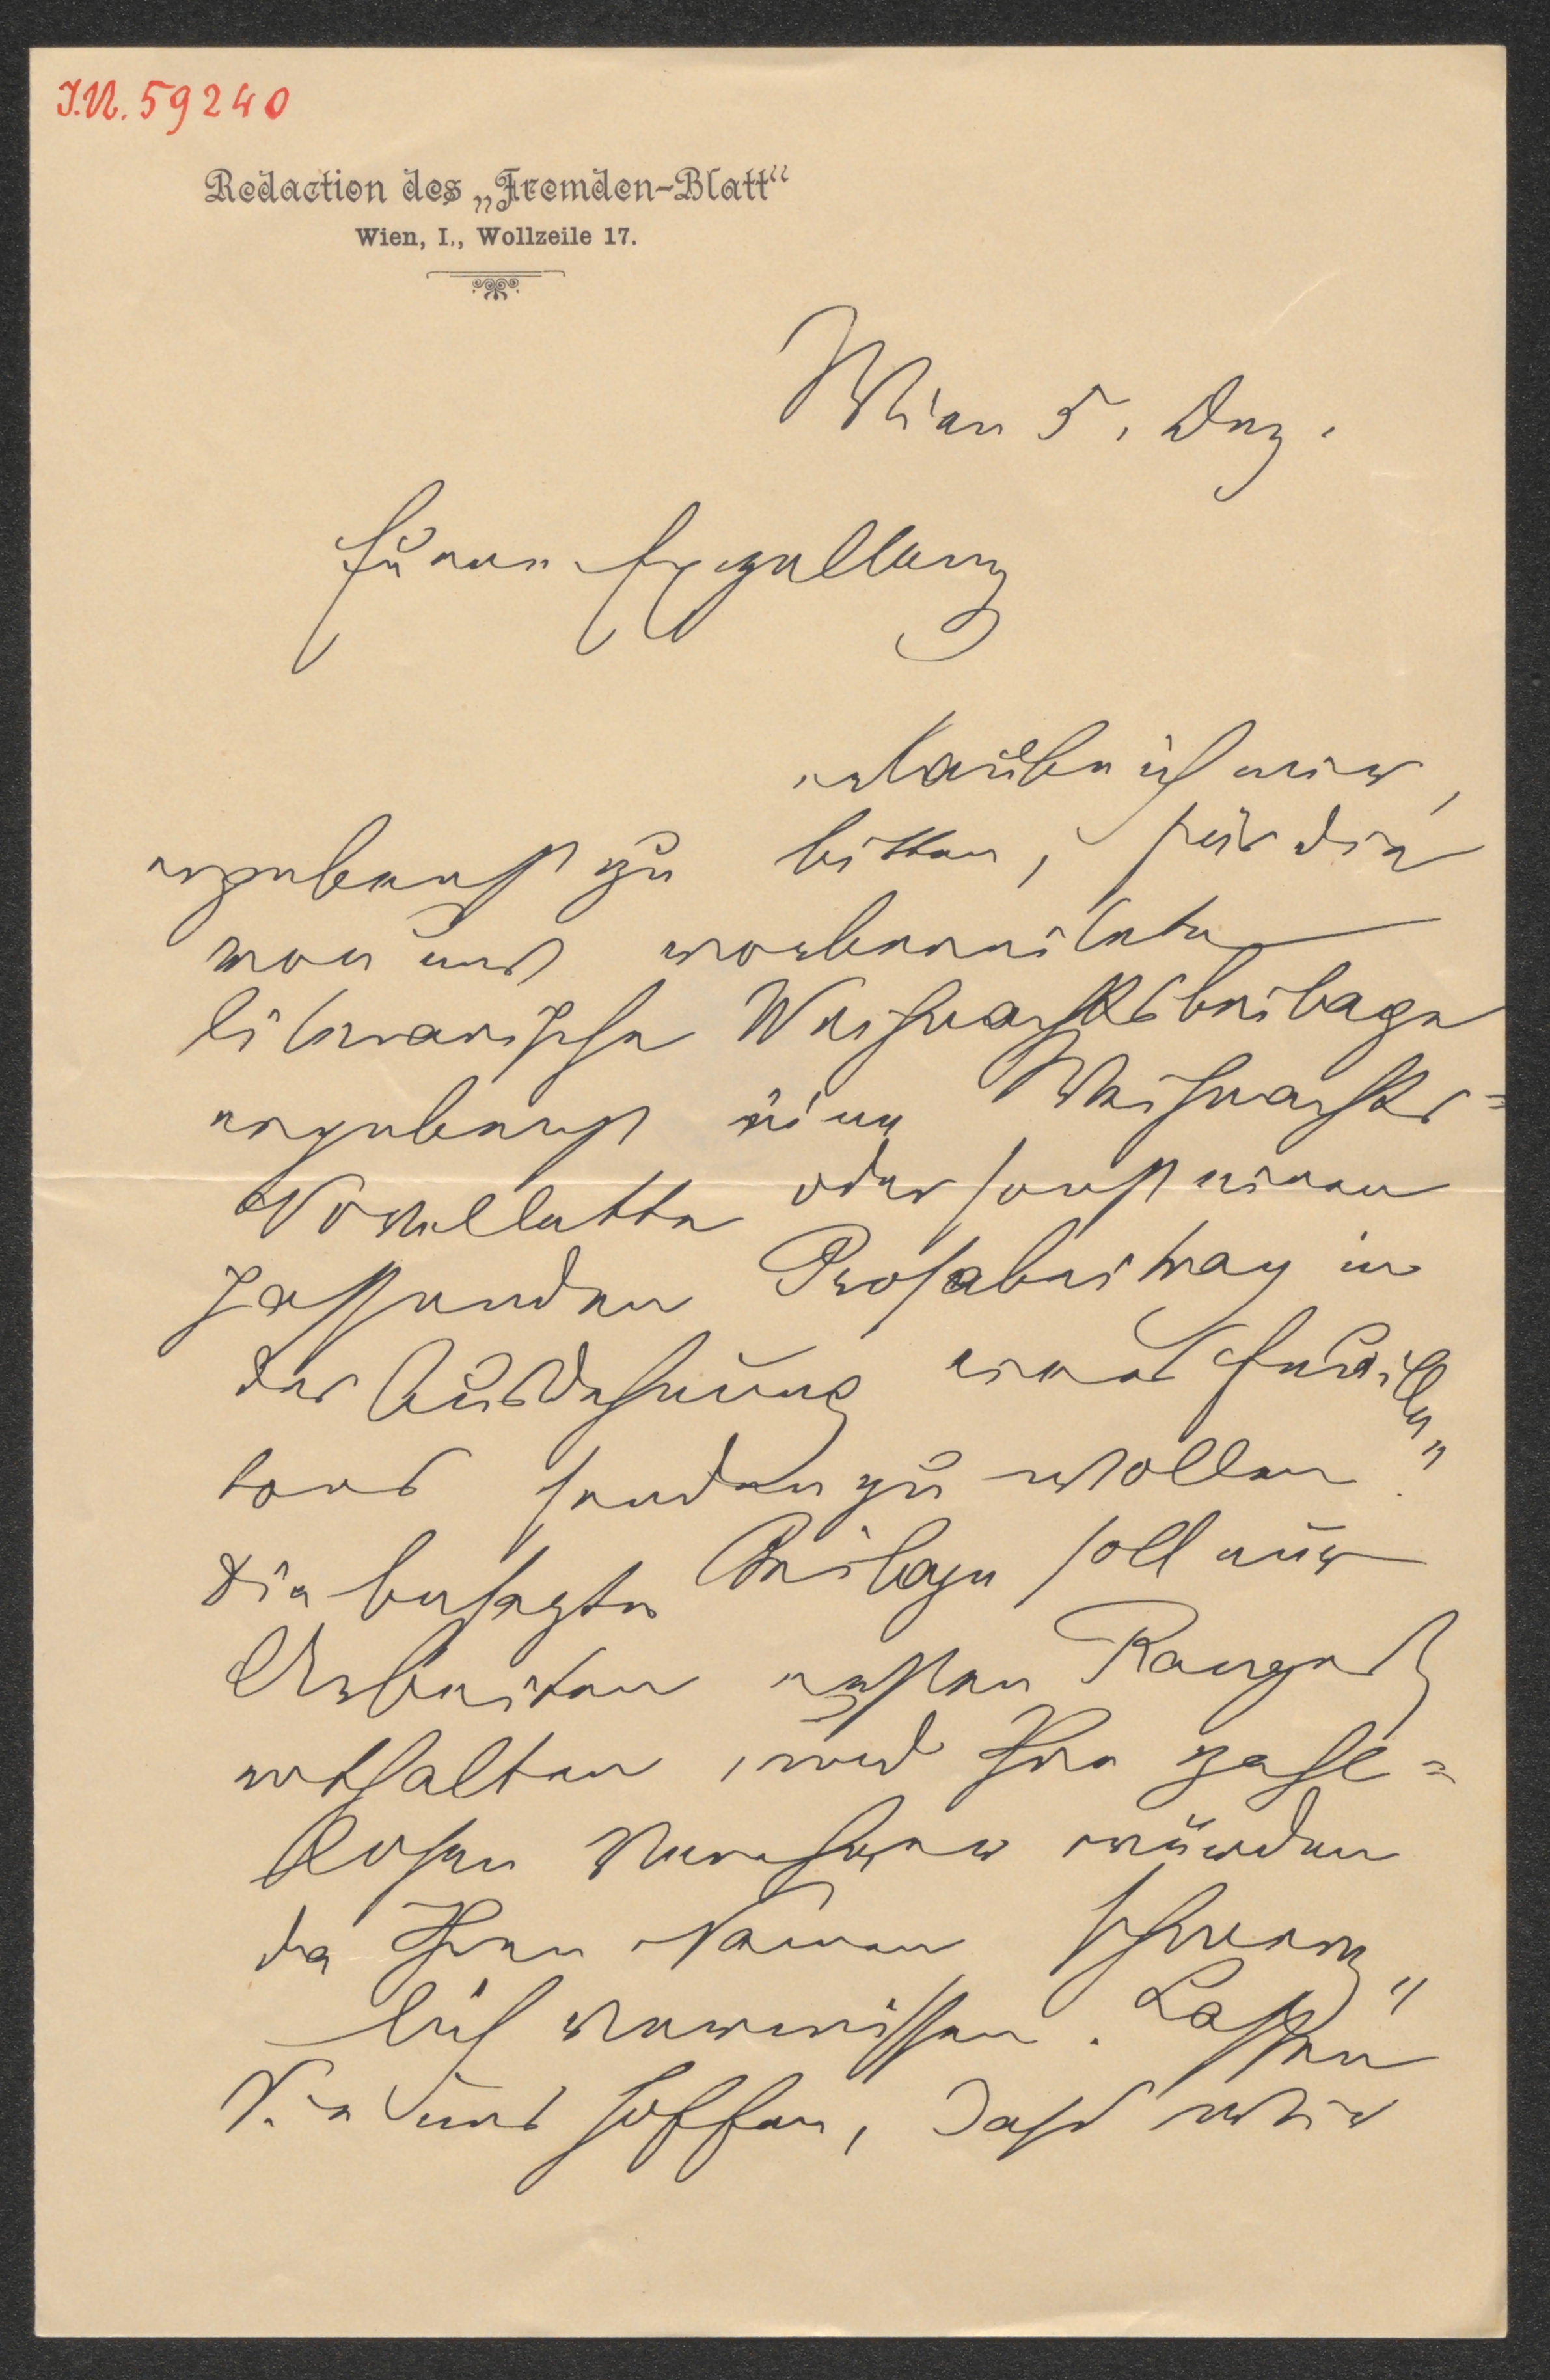 I.N. 59240
Redaction des „Fremden-Blatt“
Wien, I., Wollzeile 17.
Wien 5. Dez.
Euere Exzellenz
erlaube ich mir,
ergebenst zu bitten, für die
von uns vorbereitete
literarische Weihnachtsbeilage
ergebenst eine Weihnachts=
Novellette oder sonst einen
passenden Prosabeitrag in
der Ausdehnung eines Feuille"
tons senden zu wollen.
Die besagte Beilage soll nur
Arbeiten ersten Ranges
enthalten, und Ihre zahl=
losen Verehrer würden
da Ihren Namen schmerz"
lich vermissen. Lassen
Sie uns hoffen, dass wir